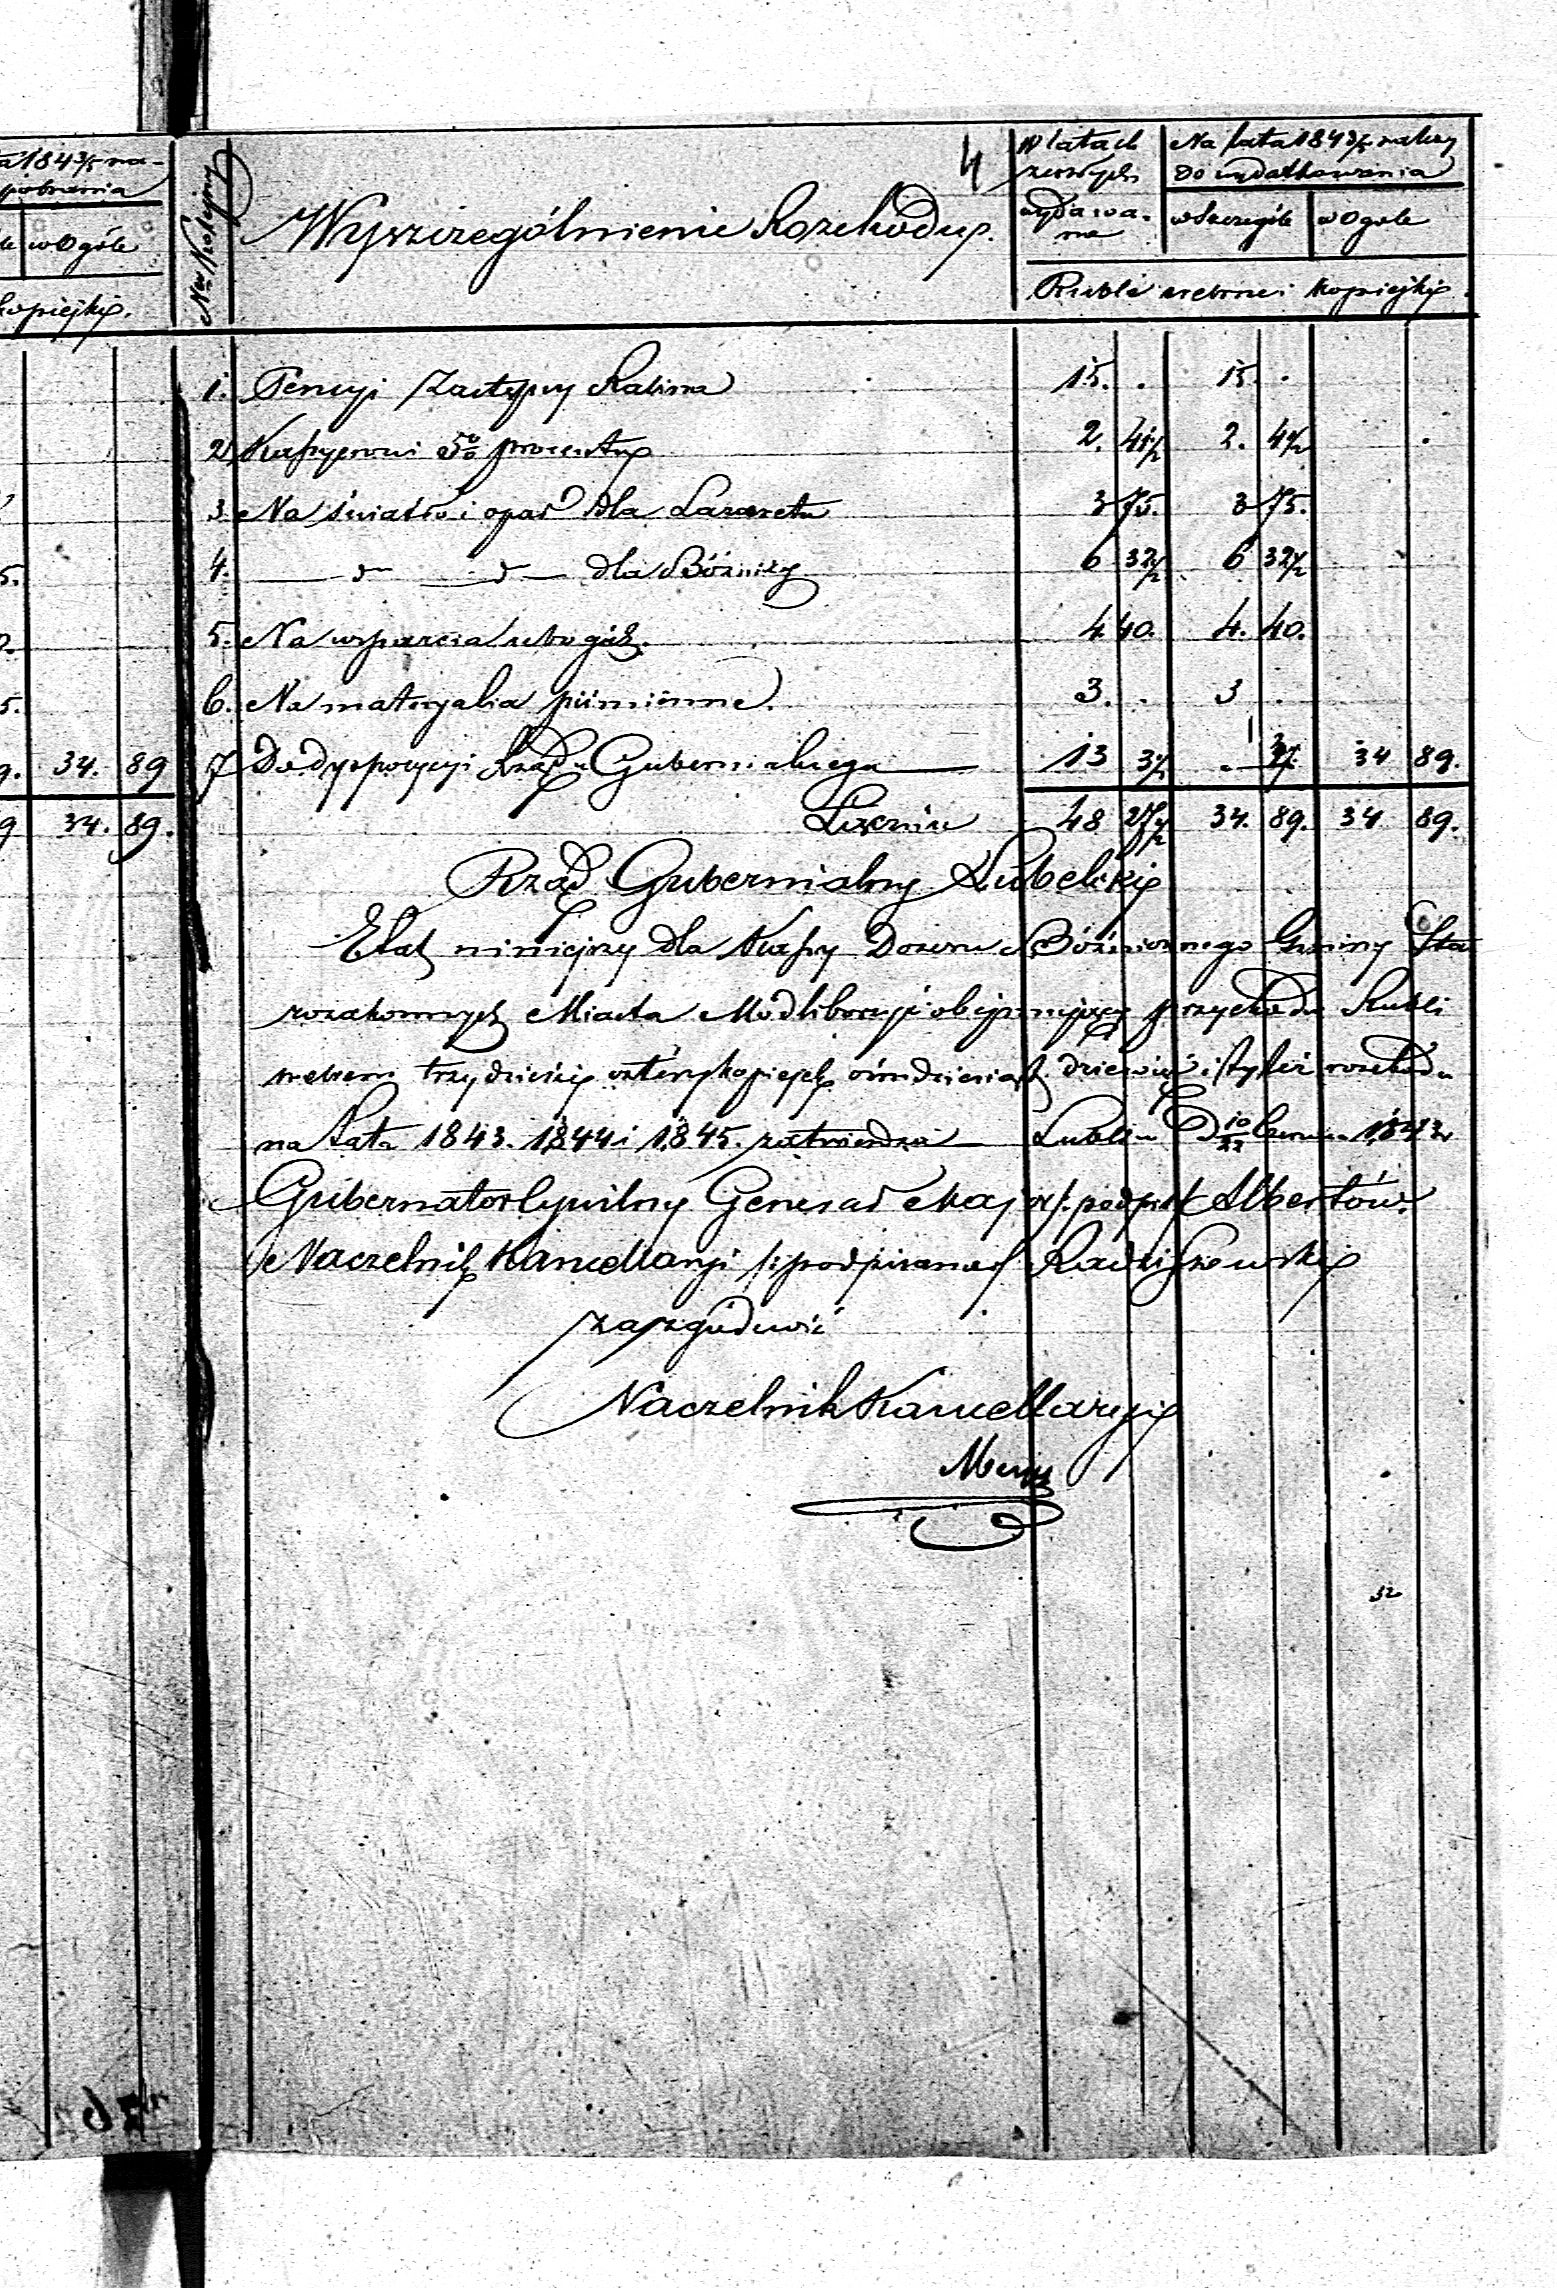 4
a 1843/5 na-
pobrania
w Ogóle
Kopiejki.
Nr Pozycyi
Wyszczególnienie Rozchodu.
W latach zeszłych wydawano
Na lata 1843/5 należy do wydatkowania
w Szczególe
w Ogóle
Ruble srebrne i Kopiejki.
1. Pensyi Zastępcy Rabina 15. . 15. .
2 Kassyerowi 5% procentu 2. 41½ 2. 41½
3 Na światło i opał dla Lazaretu 3 75. 3 75.
4. — d° — d° — dla Bóżnicy 6 32½ 6 32½
5. Na wsparcia ubogich. 4 40. 4. 40.
6. Na materyalia piśmienne. 3. . 3 .
34. 89 7 Do dyspozycyi Rządu Gubernialnego 13 34 89.
34. 89. Łącznie 48 34. 89. 34 89.
Rząd Gubernialny Lubelski
Etat niniejszy dla Kassy Dozoru Bóżnicznego Gminy Sta
rozakonnych Miasta Modliborzyc obejmujący przychodu Rubli
srebrem trzydzieści cztery kopiejek ośmdziesiąt dziewięć i tyleż rozchodu
na Lata 1843. 1844 i 1845. zatwierdza Lublin d 10/22 Czerwca 1843 r.
Gubernator Cywilny Generał Major /: podpis :/ Albertów.
Naczelnik Kancellaryi /: podpisano :/ Radziszewski
za zgodność
Naczelnik Kancellaryi